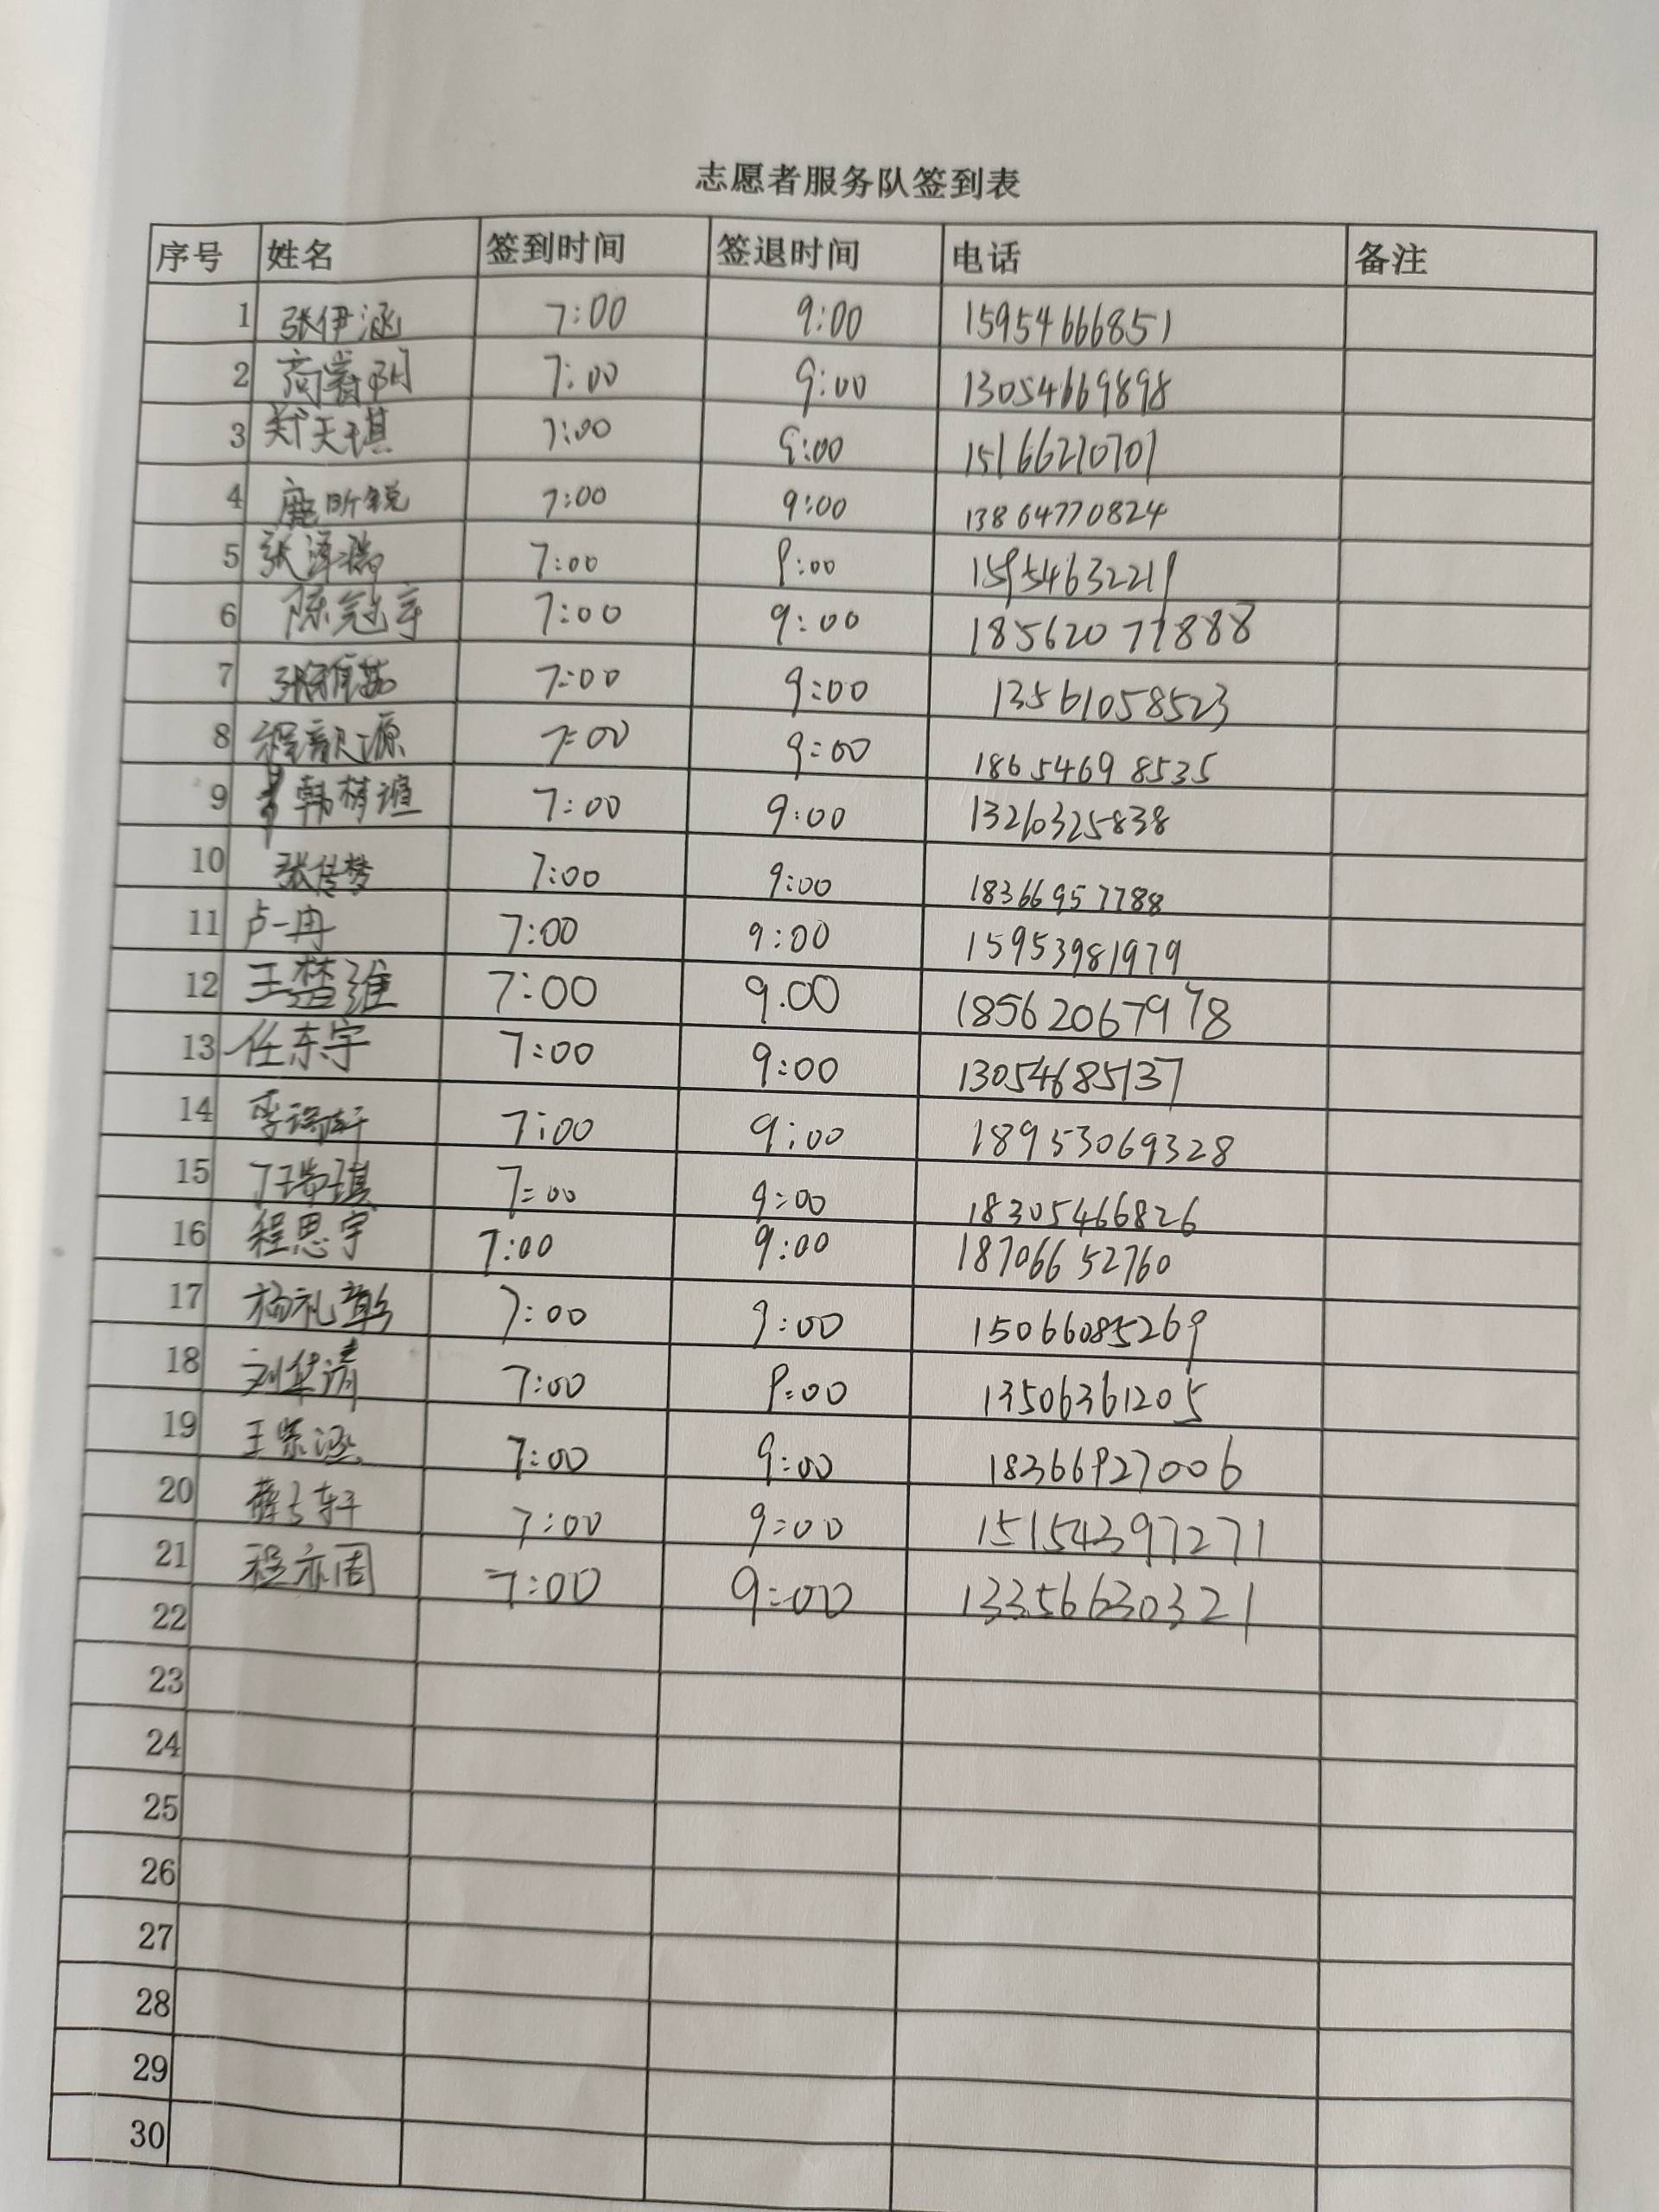 志愿者服务队签到表
序号 姓名 签到时间 签退时间 电话 备注
1 张伊涵 7:00 9:00 15954666851
2 7:00 9:00 13054669898
3 郑天琪 7:00 9:00 15166210701
4 鹿昕锐 7:00 9:00 13864770824
5 张泽瑞 7:00 9:00 15954632219
6 陈冠宇 7:00 9:00 18562077888
7 7:00 9:00 13561058523
8 7:00 9:00 18654698535
9 7:00 9:00 13210325838
10 张传梦 7:00 9:00 18366957788
11 卢一冉 7:00 9:00 15953981979
12 王楚维 7:00 9.00 18562067978
13 任东宇 7:00 9:00 13054685137
14 7:00 9:00 18953069328
15 丁瑞琪 7:00 9:00 18305466826
16 程思宇 7:00 9:00 18706652760
17 杨礼彰 7:00 9:00 15066085269
18 刘华清 7:00 9:00 13506361205
19 王紫涵 7:00 9:00 18366927006
20 7:00 9:00 15154397271
21 程亦周 7:00 9:00 13356630321
22
23
24
25
26
27
28
29
30